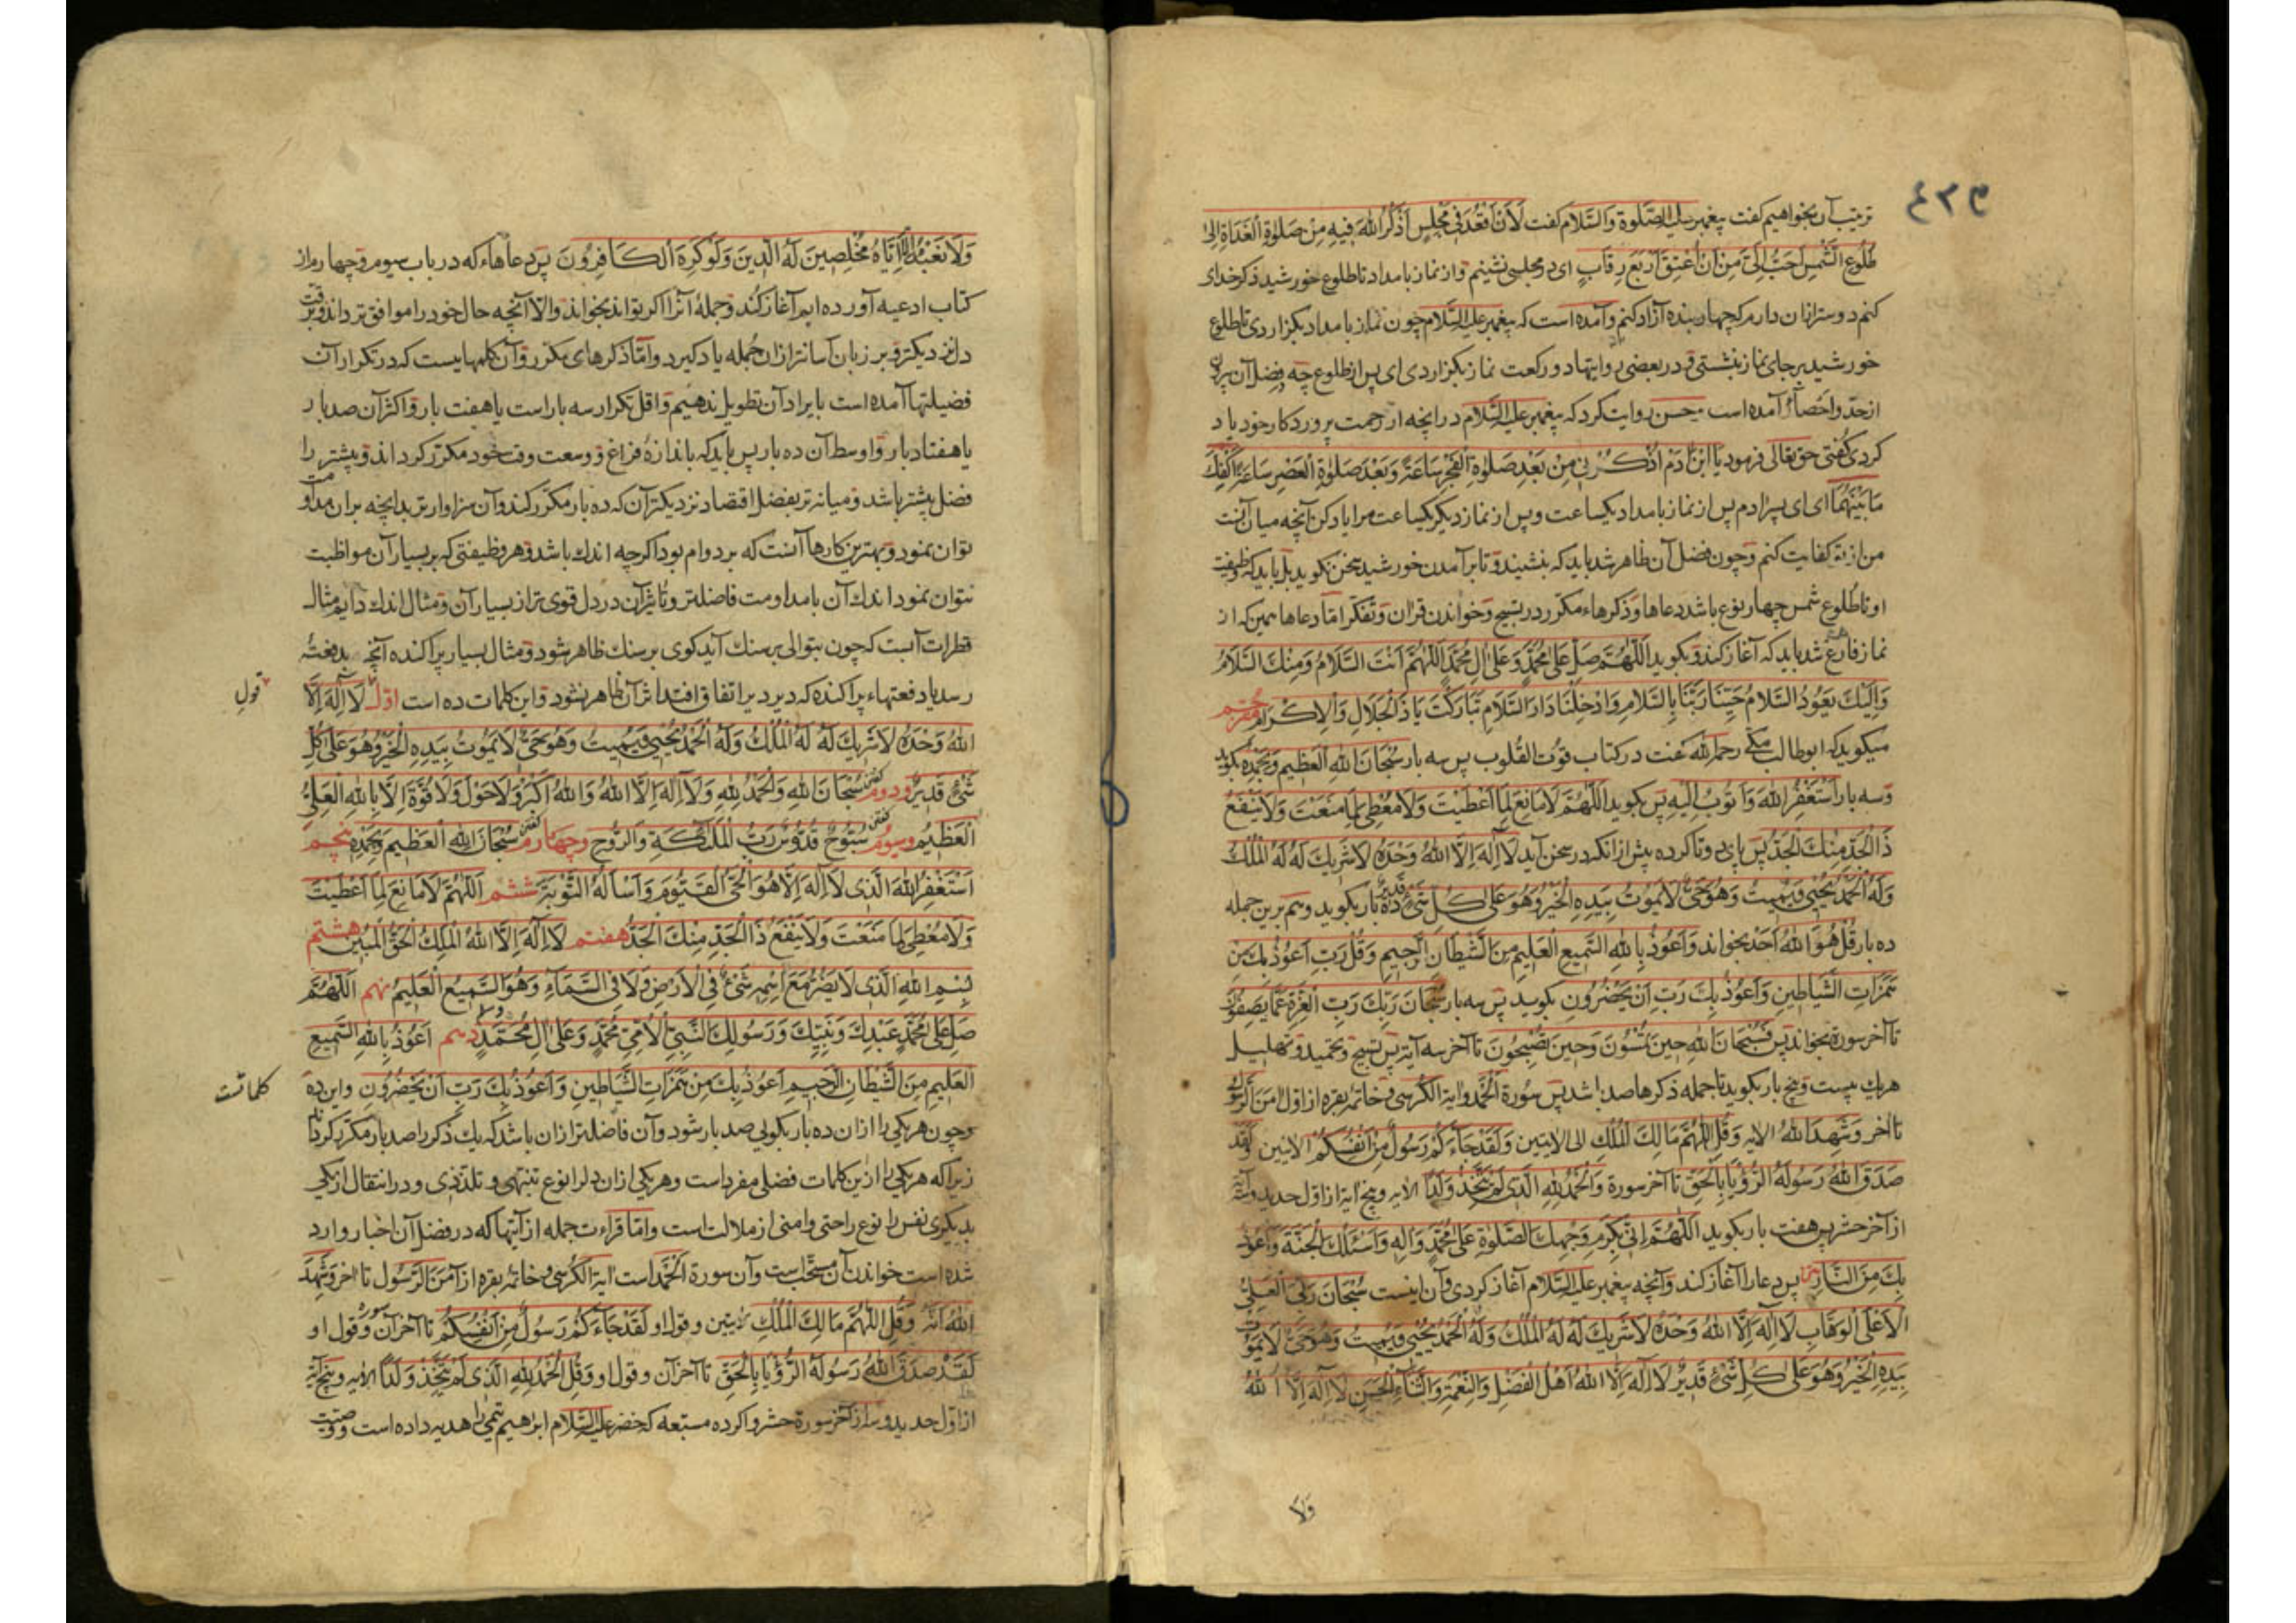 ٤٢٣
ترتیب آن بخواهیم کفت پیغمبر علیه الصلوة والسلام کفت لَأَنْ أَقْعُدَ فِي مَجْلِسٍ أَذْكُرُ اللهَ فِيهِ مِنْ صَلٰوةِ الْغَدَاةِ إِلىٰ
طُلُوعِ الشَّمْسِ أَحَبُّ إِلَيَّ مِنْ أَنْ أُعْتِقَ أَرْبَعَ رِقَابٍ ای در مجلسی نشینم و از نماز بامداد تا طلوع خورشید ذکر خدای
کنم دوستر ازان دارم که چهار بنده آزاد کنم و آمده است که پیغمبر علیه السلام چون نماز بامداد بکزاردی تا طلوع
خورشید بر جای نماز نشستی و در بعضی روایتها دو رکعت نماز بکزاردی ای پس از طلوع چه فضل آن بیرون
از حد و احصا آمده است حسن روایت کرد که پیغمبر علیه السلام در انچه از رحمت پروردکار خود یاد
کردی کفتی حق تعالی فرمود یَا ابْنَ اٰدَمَ اُذْكُرْنِي مِنْ بَعْدِ صَلٰوةِ الْفَجْرِ سَاعَةً وَبَعْدَ صَلٰوةِ الْعَصْرِ سَاعَةً أَكْفِكَ
مَا بَيْنَهُمَا ای ای پسر ادم پس از نماز بامداد یکساعت و پس از نماز دیکر یکساعت مرا یاد کن آنچه میان آنست
من از تو کفایت کنم و چون فضل آن ظاهر شد باید که بنشیند و تا بر آمدن خورشید سخن نکوید بل باید که وظیفت
او تا طلوع شمس چهار نوع باشد دعاها و ذکرهاء مکرر در تسبیح و خواندن قران و تفکر اما دعاها همین که از
نماز فارغ شد باید که آغاز کند و بکوید اَللّٰهُمَّ صَلِّ عَلىٰ مُحَمَّدٍ وَعَلىٰ اٰلِ مُحَمَّدٍ اَللّٰهُمَّ أَنْتَ السَّلَامُ وَمِنْكَ السَّلَامُ
وَإِلَيْكَ يَعُودُ السَّلَامُ حَيِّنَا رَبَّنَا بِالسَّلَامِ وَادْخِلْنَا دَارَ السَّلَامِ تَبَارَكْتَ يَا ذَا الْجَلَالِ وَالْاِكْرَامِ مترجم
میکوید که ابوطالب مکی رحمه الله کفت در کتاب قوت القلوب پس سه بار سُبْحَانَ اللهِ الْعَظِيمِ وَبِحَمْدِهِ بکوید
و سه بار أَسْتَغْفِرُ اللهَ وَأَتُوبُ إِلَيْهِ پس بکوید اَللّٰهُمَّ لَا مَانِعَ لِمَا أَعْطَيْتَ وَلَا مُعْطِيَ لِمَا مَنَعْتَ وَلَا يَنْفَعُ
ذَا الْجَدِّ مِنْكَ الْجَدُّ پس پای دوتا کرده پیش ازانکه در سخن آید لَا إِلٰهَ إِلَّا اللهُ وَحْدَهُ لَا شَرِيكَ لَهُ لَهُ الْمُلْكُ
وَلَهُ الْحَمْدُ يُحْيِي وَيُمِيتُ وَهُوَ حَيٌّ لَا يَمُوتُ بِيَدِهِ الْخَيْرُ وَهُوَ عَلىٰ كُلِّ شَيْءٍ قَدِيرٌ ده بار بکوید و هم برین جمله
ده بار قُلْ هُوَ اللهُ أَحَدٌ بخواند وَأَعُوذُ بِاللهِ السَّمِيعِ الْعَلِيمِ مِنَ الشَّيْطَانِ الرَّجِيمِ وَقُلْ رَبِّ أَعُوذُ بِكَ مِنْ
هَمَزَاتِ الشَّيَاطِينِ وَأَعُوذُ بِكَ رَبِّ أَنْ يَحْضُرُونِ بکوید پس سه بار سُبْحَانَ رَبِّكَ رَبِّ الْعِزَّةِ عَمَّا يَصِفُونَ
تا آخر سوره بخواند پس فَسُبْحَانَ اللهِ حِينَ تُمْسُونَ وَحِينَ تُصْبِحُونَ تا آخر سه آیت پس تسبیح و تحمید و تهلیل
هر یک بیست و پنج بار بکوید تا جمله ذکرها صد باشد پس سورة الحمد و آیة الکرسی و خاتمه بقره از اول اٰمَنَ الرَّسُولُ
تا آخر وَشَهِدَ اللهُ الایه وَقُلِ اللّٰهُمَّ مَالِكَ الْمُلْكِ الی الایتین وَلَقَدْ جَاءَكُمْ رَسُولٌ مِنْ أَنْفُسِكُمْ الایتین لَقَدْ
صَدَقَ اللهُ رَسُولَهُ الرُّؤْيَا بِالْحَقِّ تا آخر سورة وَالْحَمْدُ لِلّٰهِ الَّذِي لَمْ يَتَّخِذْ وَلَدًا الایه و پنج آیة از اول حدید و سه
از آخر حشر پس هفت بار بکوید اَللّٰهُمَّ إِنِّي بِكَرَمِ وَجْهِكَ الصَّلٰوةَ عَلىٰ مُحَمَّدٍ وَاٰلِهِ وَأَسْئَلُكَ الْجَنَّةَ وَأَعُوذُ
بِكَ مِنَ النَّارِ پس دعا را آغاز کند و آنچه پیغمبر علیه السلام آغاز کردی و آن اینست سُبْحَانَ رَبِّيَ الْعَلِيِّ
الْأَعْلَى الْوَهَّابِ لَا إِلٰهَ إِلَّا اللهُ وَحْدَهُ لَا شَرِيكَ لَهُ لَهُ الْمُلْكُ وَلَهُ الْحَمْدُ يُحْيِي وَيُمِيتُ وَهُوَ حَيٌّ لَا يَمُوتُ
بِيَدِهِ الْخَيْرُ وَهُوَ عَلىٰ كُلِّ شَيْءٍ قَدِيرٌ لَا إِلٰهَ إِلَّا اللهُ أَهْلُ الْفَضْلِ وَالنِّعْمَةِ وَالثَّنَاءِ الْحَسَنِ لَا إِلٰهَ إِلَّا اللهُ
وَلَا
وَلَا نَعْبُدُ إِلَّا إِيَّاهُ مُخْلِصِينَ لَهُ الدِّينَ وَلَوْ كَرِهَ الْكَافِرُونَ پس دعاهاء که در باب سیوم و چهارم از
کتاب ادعیه آورده ایم آغاز کند و جملهٔ آنرا اکر تواند بخواند والا آنچه حال خود را موافق تر داند و برقت
دل نزدیکتر و بر زبان آسانتر ازان جمله یاد کیرد واما ذکرهای مکرر و آن کلمهاییست که در تکرار آن
فضیلتها آمده است بایراد آن تطویل ندهیم و اقل تکرار سه بار است یا هفت بار و اکثر آن صد بار
یا هفتاد بار و اوسط آن ده بار پس باید که باندازهٔ فراغ و وسعت وقت خود مکرر کرداند و بیشتر را
فضل بیشتر باشد و میانه تر بفضل اقتصاد نزدیکتر آن که ده بار مکرر کند و آن سزاوارتر بدانچه بران مداومت
توان نمود و بهترین کارها آنست که بر دوام بود اکرچه اندک باشد و هر وظیفتی که بر بسیار آن مواظبت
نتوان نمود اندک آن با مداومت فاضلتر و تاثیر آن در دل قوی تر از بسیار آن و مثال اندک دایم مثال
قطرات آبست که چون بتوالی بر سنک آید کوی بر سنک ظاهر شود و مثال بسیار پراکنده آنچه بدفعتهٔ
رسد یا دفعتهاء پراکنده که دیر دیر اتفاق افتد اثر آن ظاهر نشود و این کلمات ده است اول لَا إِلٰهَ إِلَّا
قول
اللهُ وَحْدَهُ لَا شَرِيكَ لَهُ لَهُ الْمُلْكُ وَلَهُ الْحَمْدُ يُحْيِي وَيُمِيتُ وَهُوَ حَيٌّ لَا يَمُوتُ بِيَدِهِ الْخَيْرُ وَهُوَ عَلىٰ كُلِّ
شَيْءٍ قَدِيرٌ ودوم کفتن سُبْحَانَ اللهِ وَالْحَمْدُ لِلّٰهِ وَلَا إِلٰهَ إِلَّا اللهُ وَاللهُ أَكْبَرُ وَلَا حَوْلَ وَلَا قُوَّةَ إِلَّا بِاللهِ الْعَلِيِّ
الْعَظِيمِ وسیوم کفتن سُبُّوحٌ قُدُّوسٌ رَبُّ الْمَلٰئِكَةِ وَالرُّوحِ وچهارم کفتن سُبْحَانَ اللهِ الْعَظِيمِ وَبِحَمْدِهِ پنجم
أَسْتَغْفِرُ اللهَ الَّذِي لَا إِلٰهَ إِلَّا هُوَ الْحَيُّ الْقَيُّومُ وَأَسْأَلُهُ التَّوْبَةَ ششم اَللّٰهُمَّ لَا مَانِعَ لِمَا أَعْطَيْتَ
وَلَا مُعْطِيَ لِمَا مَنَعْتَ وَلَا يَنْفَعُ ذَا الْجَدِّ مِنْكَ الْجَدُّ هفتم لَا إِلٰهَ إِلَّا اللهُ الْمَلِكُ الْحَقُّ الْمُبِينُ هشتم
بِسْمِ اللهِ الَّذِي لَا يَضُرُّ مَعَ اسْمِهِ شَيْءٌ فِي الْأَرْضِ وَلَا فِي السَّمَاءِ وَهُوَ السَّمِيعُ الْعَلِيمُ نهم اَللّٰهُمَّ
صَلِّ عَلىٰ مُحَمَّدٍ عَبْدِكَ وَنَبِيِّكَ وَرَسُولِكَ النَّبِيِّ الْأُمِّيِّ مُحَمَّدٍ وَعَلىٰ اٰلِ مُحَمَّدٍ دهم أَعُوذُ بِاللهِ السَّمِيعِ
الْعَلِيمِ مِنَ الشَّيْطَانِ الرَّجِيمِ أَعُوذُ بِكَ مِنْ هَمَزَاتِ الشَّيَاطِينِ وَأَعُوذُ بِكَ رَبِّ أَنْ يَحْضُرُونِ واین ده
کلماتست
وچون هر یکی را ازان ده بار بکویی صد بار شود و آن فاضلتر ازان باشد که یک ذکر را صد بار مکرر کرداند
زیرا که هر یکی را ازین کلمات فضلی مفرد است و هر یکی ازان دلرا نوع تنبهی و تلذذی و در انتقال از یکی
بدیکری نفس را نوع راحتی و امنی از ملالت است واما قراءت جمله از آیتها که در فضل آن اخبار وارد
شده است خواندن آن مستحب است و آن سورة الحمد است آیة الکرسی و خاتمه بقره از اٰمَنَ الرَّسُولُ تا اخر وَشَهِدَ
اللهُ أَنَّهُ وَقُلِ اللّٰهُمَّ مَالِكَ الْمُلْكِ الایتین وقول او لَقَدْ جَاءَكُمْ رَسُولٌ مِنْ أَنْفُسِكُمْ تا آخر آن سوره وقول او
لَقَدْ صَدَقَ اللهُ رَسُولَهُ الرُّؤْيَا بِالْحَقِّ تا آخر آن وقول او وَقُلِ الْحَمْدُ لِلّٰهِ الَّذِي لَمْ يَتَّخِذْ وَلَدًا الایه و پنج آیة
از اول حدید و سه از آخر سورة حشر و اکر ده مسبعه که خضر علیه السلام ابرهیم تیمی را هدیه داده است و وصیت